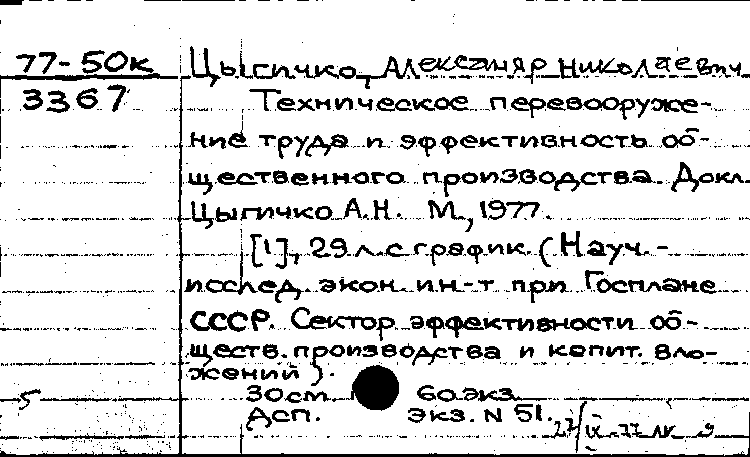 77-50к Цыгичко, Александр Николаевич
3367 Техническое перевооруже-
ние труда и эффективность об-
щественного производства. Докл.
Цыгичко А.Н. М., 1977.
[1], 29 л. с график. (Науч.-
исслед. экон. ин-т при Госплане
СССР. Сектор эффективности об-
ществ. производства и капит. вло-
жений).
5 30 см. 60 экз.
Дсп. Экз. N 51.